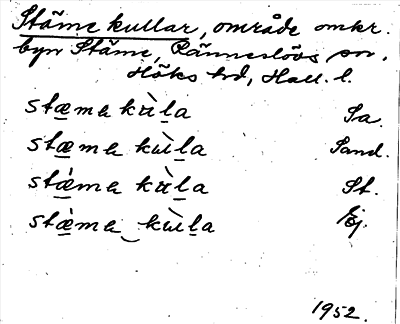 Stäme kullar, område omkr.
byn Stäme, Ränneslövs sn.
Höks hd, Hall. l.
stæma kùla Sa.
stæma kùla Sand.
stæ̀ma kùla St.
stæ̀ma‿kùla Ej.
1952.